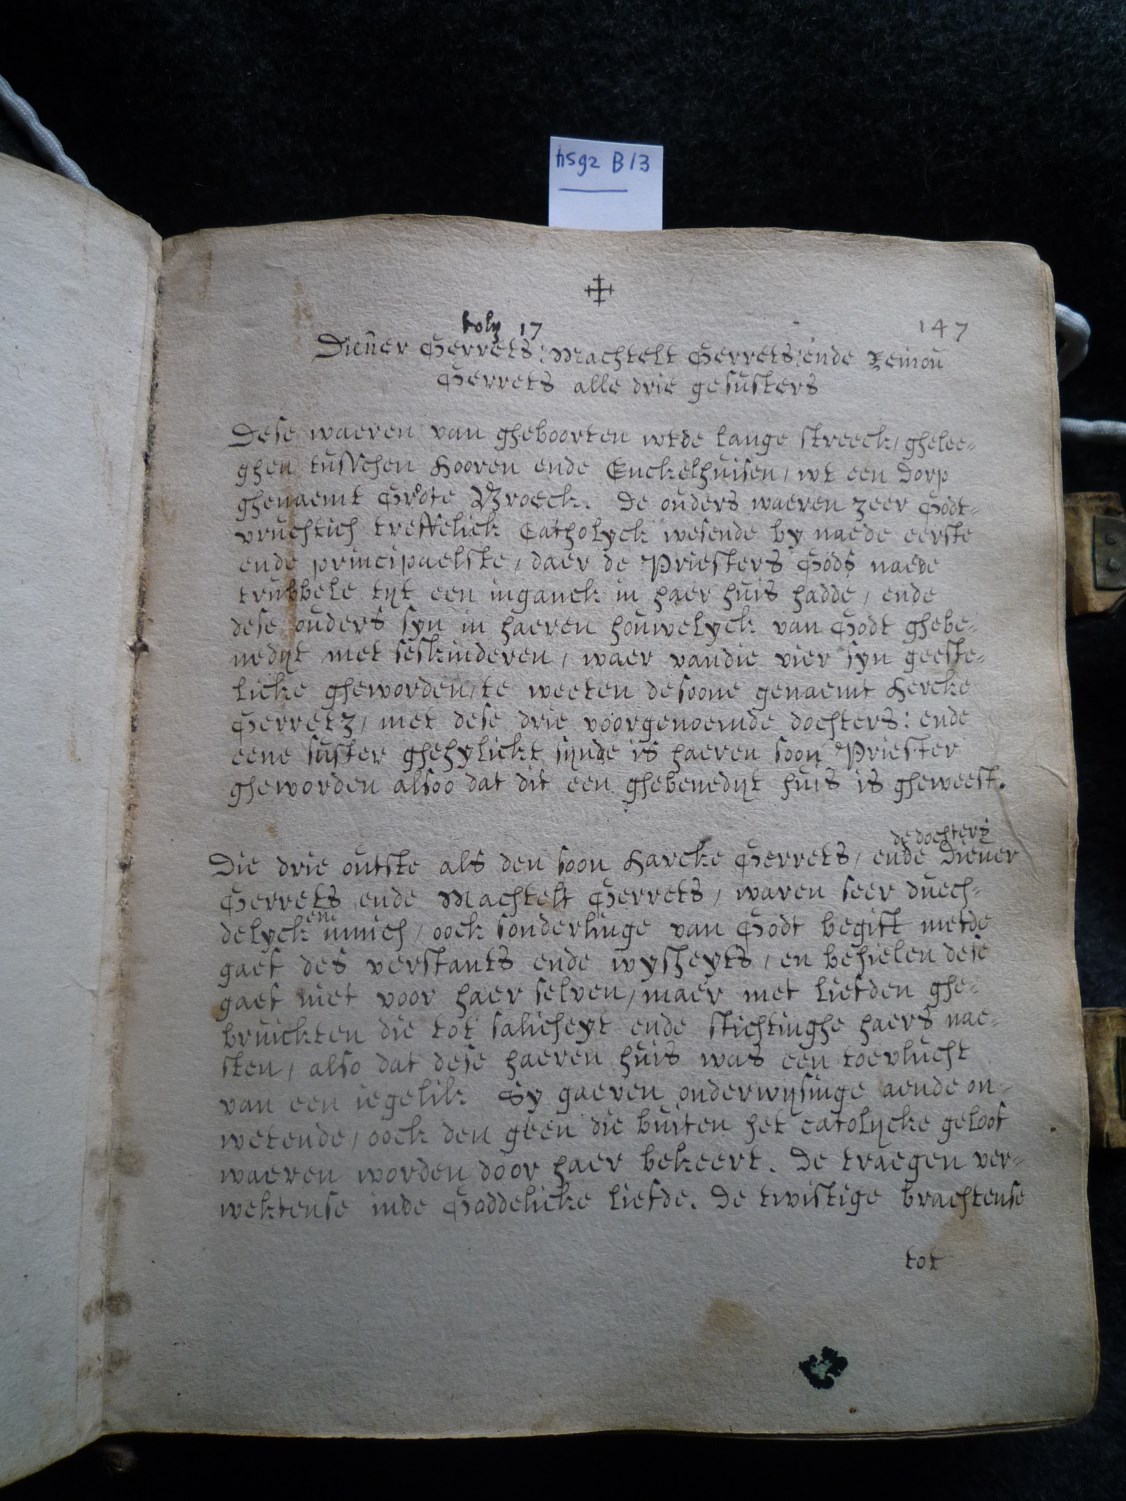 hsg2 B13
147
July 17
Dieuer Gerrets: Machtelt Gerrets: ende Remou
Gerrets alle drie gesusters
Dese waeren van gheboorten wtde lange streeck/ ghelee-
ghen tusschen Hooren ende Enckelhuisen/ wt een dorp
ghenaemt Grote Broeck. De ouders waeren zeer Godt-
vruchtich treffelick Catholyck wesende by naede eerste
ende principaelste, daer de Priesters Gods naede
trubbele tyt een inganck in haer huis hadde, ende
dese ouders syn in haeren houwelyck van Godt ghebe-
nedyt met seskinderen, waer vandie vier syn geeste-
licke gheworden, te weeten desoone genaemt Hercke
Gerretz, met dese drie voorgenoemde dochters: ende
eene suster ghehylickt synde is haeren soon Priester
gheworden alsoo dat dit een ghebenedyt huis is gheweest.
de dochters
Die drie outste als den soon Harcke Gerrets, ende Dieuer
Gerrets ende Machtelt Gerrets, waren seer duech-
delyck ende innich, oock sonderlinge van Godt begift metde
gaef des verstants ende wysheyts, en behielen dese
gaef niet voor haer selven, maer met liefden ghe-
bruickten die tot salicheyt ende stichtinghe haers nae-
sten, also dat dese haeren huis was een toevlucht
van een iegelik Sy gaeven onderwysinge aende on-
wetende, oock den geen die buiten het catolycke geloof
waeren worden door haer bekeert. De traegen ver-
wektense inde Goddelicke liefde. De twistige brachtense
tot